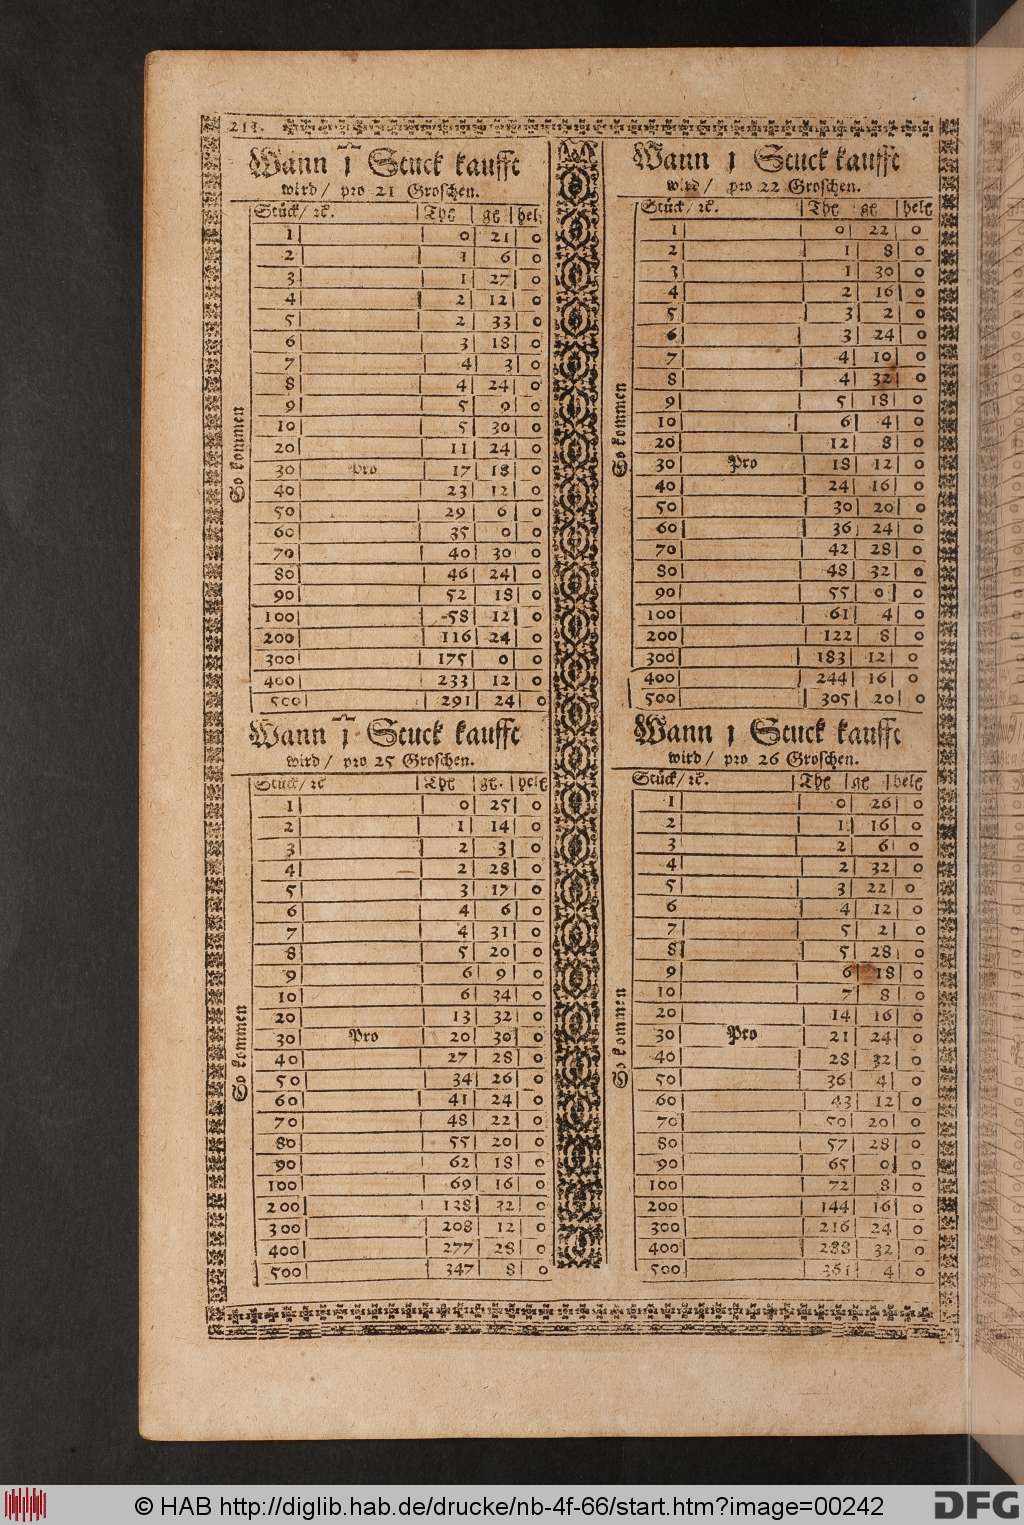 211.
Wann 1 Stuck kaufft
wird / pro 21 Groschen.
Stück / ꝛc. Thl gl hell
1 0 21 0
2 1 6 0
3 1 27 0
4 2 12 0
5 2 33 0
6 3 18 0
7 4 3 0
8 4 24 0
9 5 9 0
10 5 30 0
20 11 24 0
So kommen
30 Pro 17 18 0
40 23 12 0
50 29 6 0
60 35 0 0
70 40 30 0
80 46 24 0
90 52 18 0
100 58 12 0
200 116 24 0
300 175 0 0
400 233 12 0
500 291 24 0
Wann 1 Stuck kaufft
wird / pro 22 Groschen.
Stück / ꝛc. Thl gl hell
1 0 22 0
2 1 8 0
3 1 30 0
4 2 16 0
5 3 2 0
6 3 24 0
7 4 10 0
8 4 32 0
9 5 18 0
10 6 4 0
20 12 8 0
So kommen
30 Pro 18 12 0
40 24 16 0
50 30 20 0
60 36 24 0
70 42 28 0
80 48 32 0
90 55 0 0
100 61 4 0
200 122 8 0
300 183 12 0
400 244 16 0
500 305 20 0
Wann 1 Stuck kaufft
wird / pro 25 Groschen.
Stück / ꝛc Thl gl. hell
1 0 25 0
2 1 14 0
3 2 3 0
4 2 28 0
5 3 17 0
6 4 6 0
7 4 31 0
8 5 20 0
9 6 9 0
10 6 34 0
20 13 32 0
So kommen
30 Pro 20 30 0
40 27 28 0
50 34 26 0
60 41 24 0
70 48 22 0
80 55 20 0
90 62 18 0
100 69 16 0
200 138 32 0
300 208 12 0
400 277 28 0
500 347 8 0
Wann 1 Stuck kaufft
wird / pro 26 Groschen.
Stück / ꝛc. Thl gl hell
1 0 26 0
2 1 16 0
3 2 6 0
4 2 32 0
5 3 22 0
6 4 12 0
7 5 2 0
8 5 28 0
9 6 18 0
10 7 8 0
20 14 16 0
So kommen
30 Pro 21 24 0
40 28 32 0
50 36 4 0
60 43 12 0
70 50 20 0
80 57 28 0
90 65 0 0
100 72 8 0
200 144 16 0
300 216 24 0
400 288 32 0
500 361 4 0
© HAB http://diglib.hab.de/drucke/nb-4f-66/start.htm?image=00242
DFG